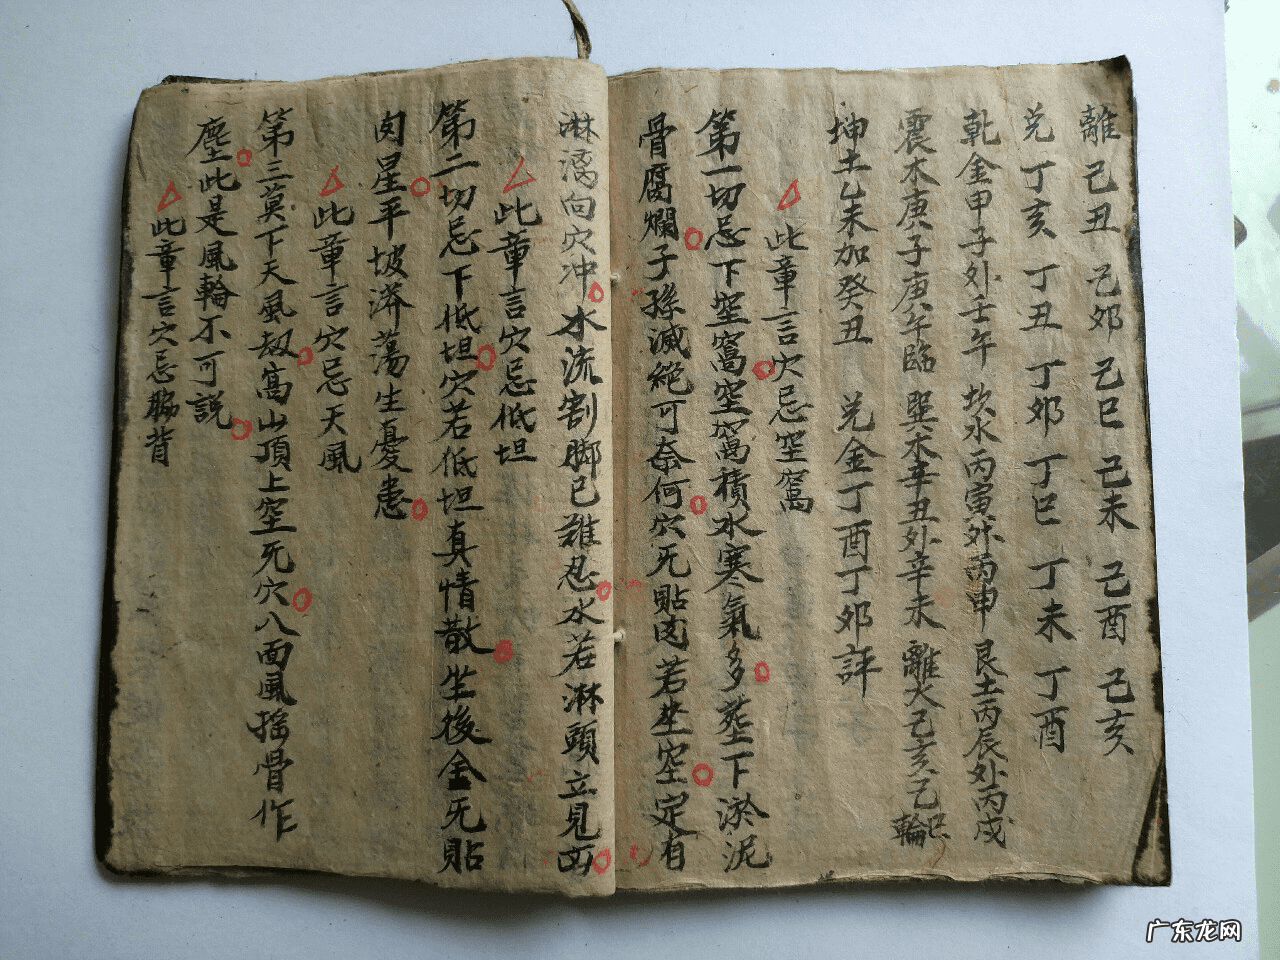 離己丑 己卯 己巳 己未 己酉 己亥
兑丁亥 丁丑 丁卯 丁巳 丁未 丁酉
乾金甲子外壬午 坎水丙寅外丙申 艮土丙辰外丙戌
震木庚子庚午臨 巽木辛丑外辛未 離火己亥己巳輪
坤土乙未加癸丑 兑金丁酉丁卯評
△此章言穴忌空窩
第一切忌下空窩空窩積水寒氣多塟下淤泥
骨腐爛子孫滅絶可奈何穴无貼肉若坐空定有
淋漓向穴冲水流割脚已難忍水若淋頭立見凶
△此章言穴忌低坦
第二切忌下低坦穴若低坦真情散坐後金无貼
肉星平坡漭蕩生憂患
△此章言穴忌天風
第三莫下天風劫高山頂上空无穴八面風摇骨作
塵此是風輪不可説
△此章言穴忌腦背
广东龙网